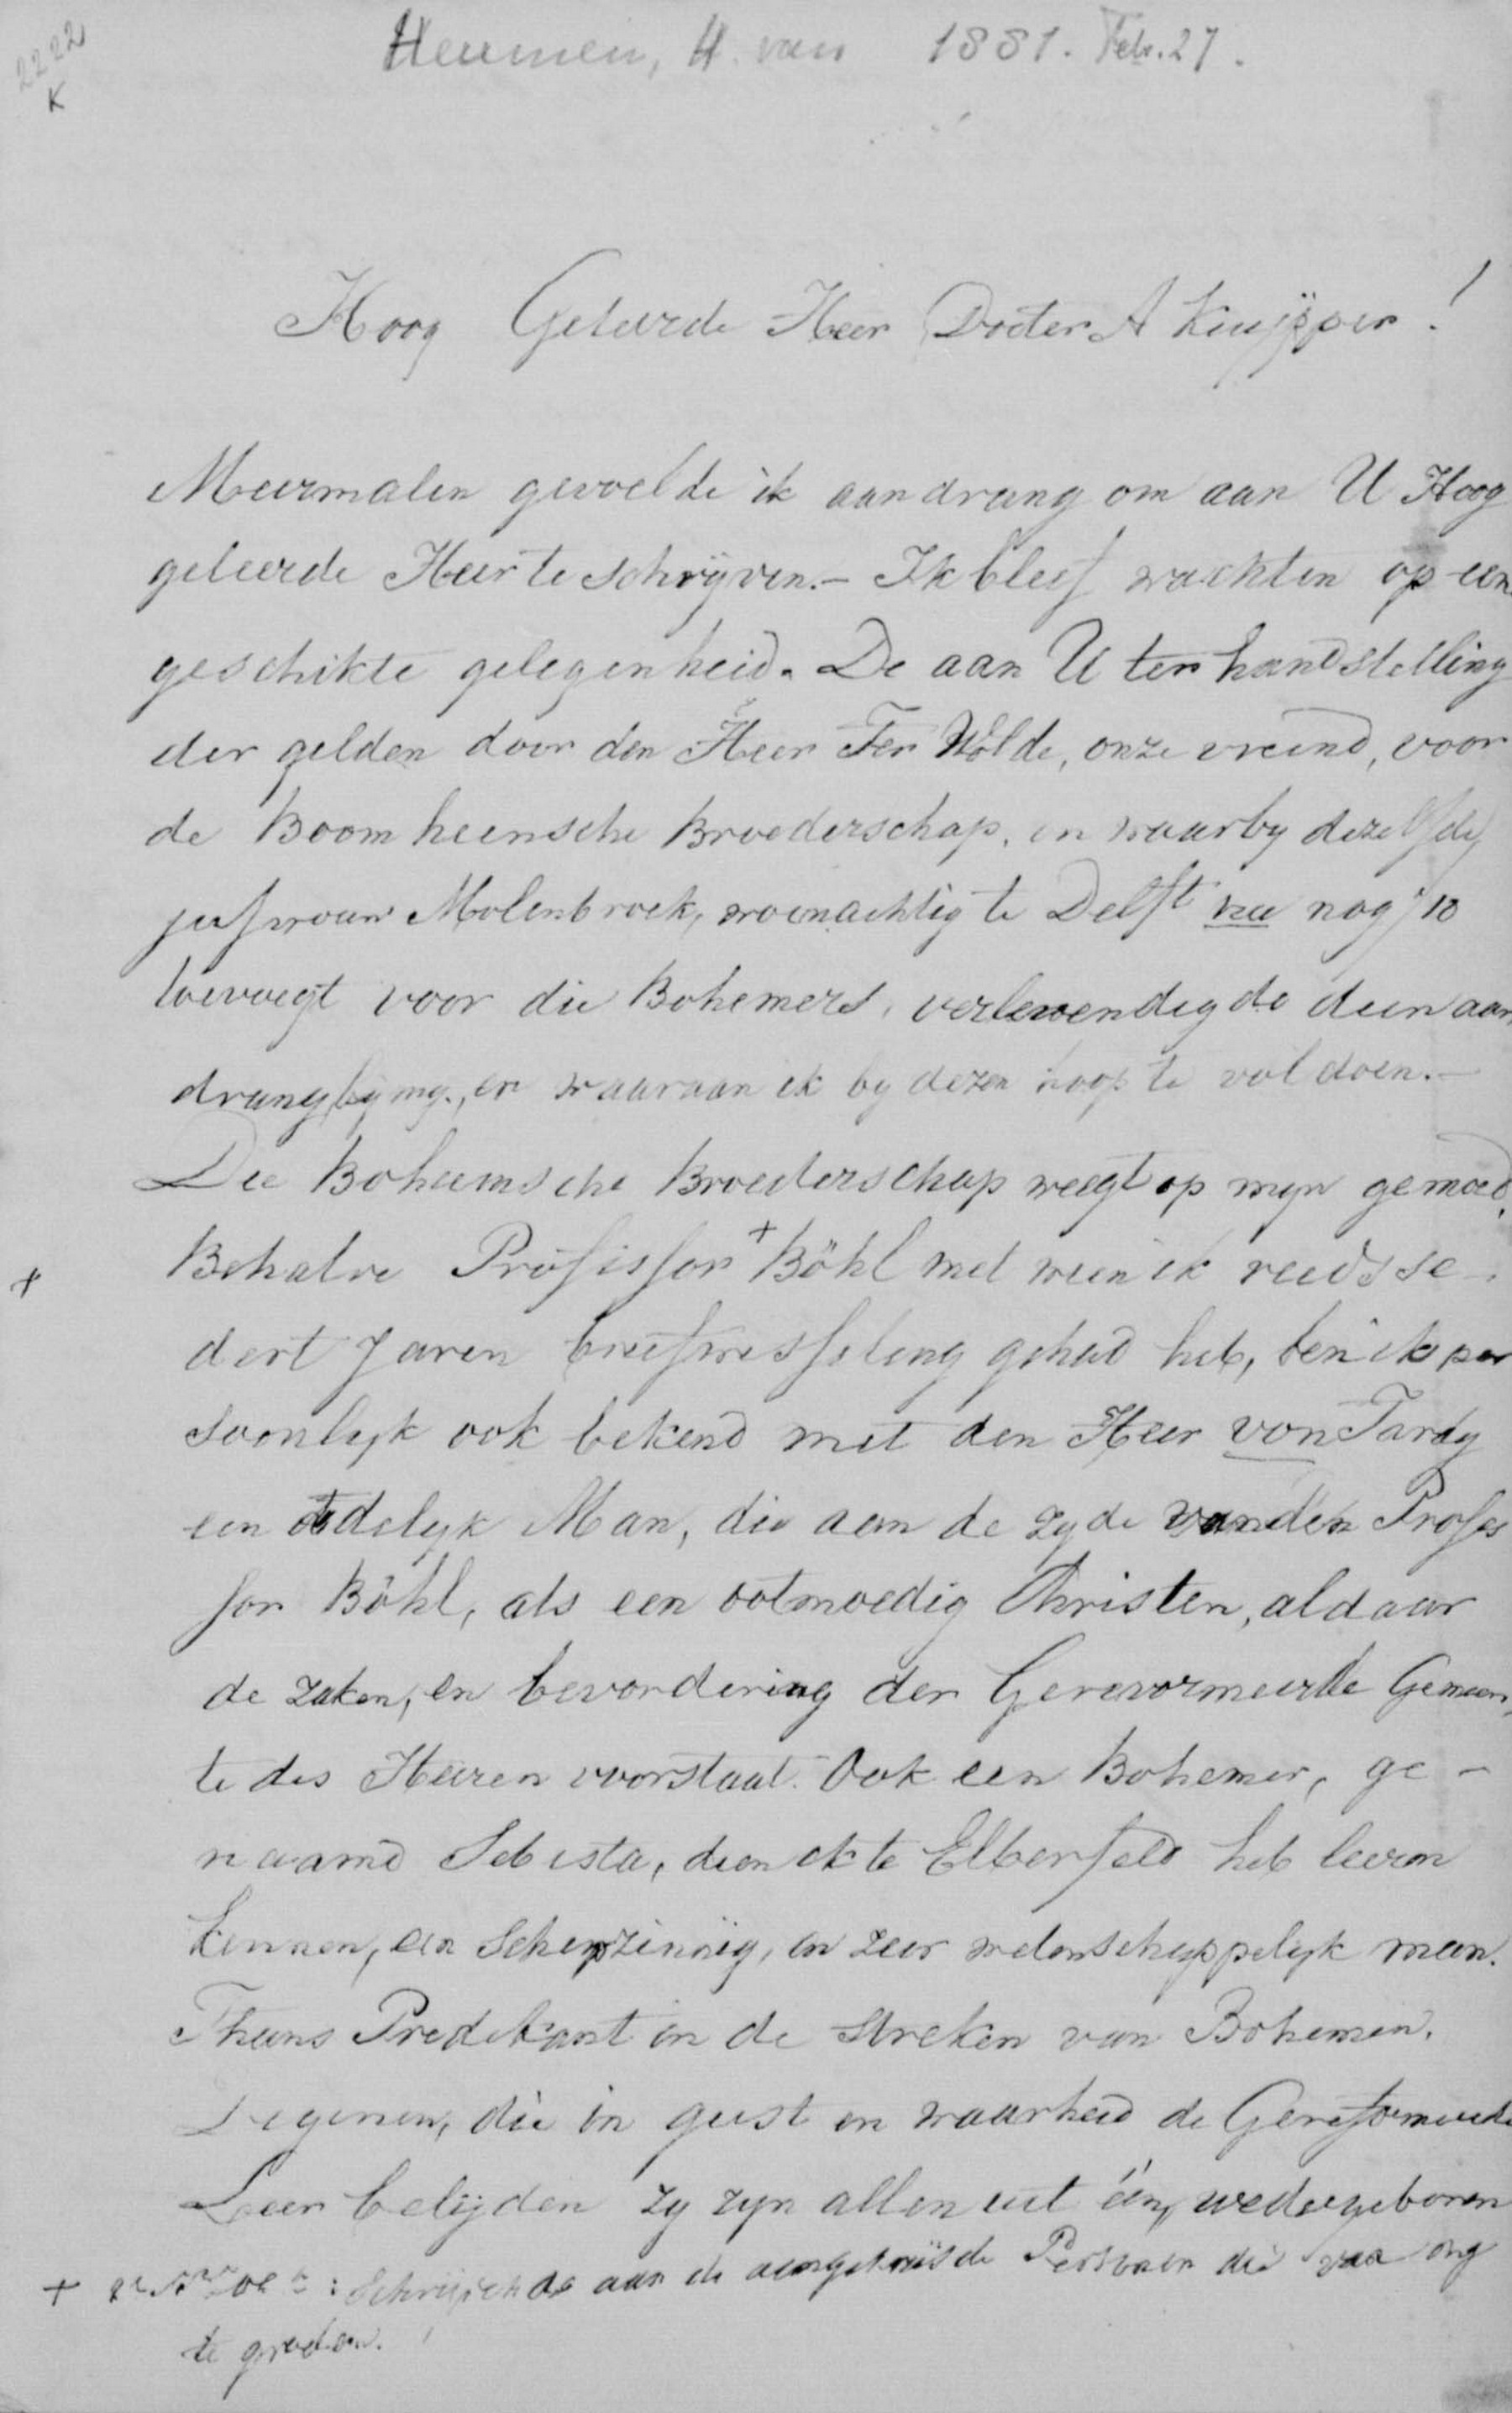 2222
K
Heumen, H. van 1881. Feb. 27.
Hoog Geleerde Heer Docter A Kuijper!
Meermalen gevoelde ik aandrang om aan U Hoog
geleerde Heer te schrijven. - Ik bleef wachten op een
geschikte gelegenheid. De aan U ter handstelling
der gelden door den Heer Ter Wolde, onze vreind, voor
de Boomheensche Broederschap, en waarby dezelfde
jufvrouw Molenbroek, woenachtig te Delft nu nog f 10
toevoegt voor die Bohemers, verlevendigde deen aan
drang by my, en waaraan ik by dezen hoop te voldoen. -
Die Boheemsche Broederschap weegt op myn gemoed.
+ Behalve Professor + Böhl met wien ik reeds se-
dert Jaren briefwesseling gehad heb, ben ik per
soonlyk ook bekend met den Heer von Tardy
een edelyk Man, die aan de zyde van den Profes
sor Böhl, als een ootmoedig Christen, aldaar
de zaken, en bevordering der Gerevormeerde Gemeen
te des Heeren voorstaat. Ook een Bohemer, ge-
naamd Sebesta, dien ik te Elberfeld heb leeren
kennen, een Scherpzinnig, en zeer wetenschappelyk man.
Thans Predikant in de Streken van Bohemen.
Degenen, die in geest en waarheid de Gereformeerde
Leer belijden zy zyn allen uit één, wedergeboren
+ : Schrijvende aan de Persoon die van my
te groeten.